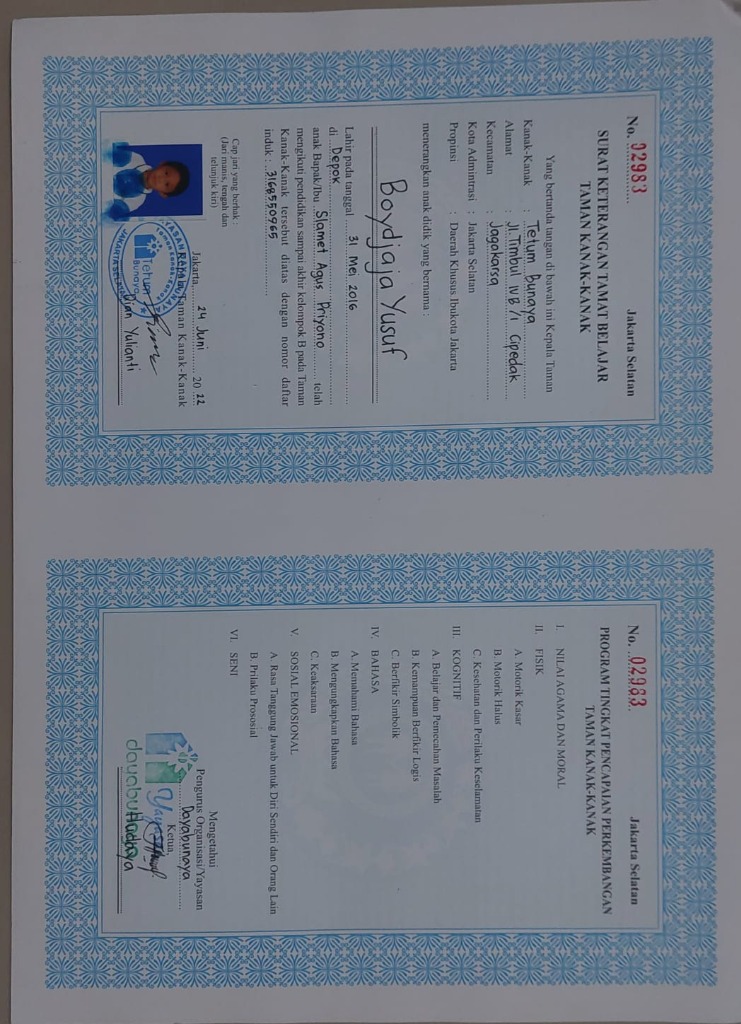 No. 02983 Jakarta Selatan
SURAT KETERANGAN TAMAT BELAJAR
TAMAN KANAK-KANAK
Yang bertanda tangan di bawah ini Kepala Taman
Kanak-Kanak : Tetum Bunaya
Alamat : Jl. Timbul IVB/1 Cipedak
Kecamatan : Jagakarsa
Kota Admintrasi : Jakarta Selatan
Propinsi : Daerah Khusus Ibukota Jakarta
menerangkan anak didik yang bernama :
Boydjaja Yusuf
Lahir pada tanggal 31 Mei 2016
di Depok
anak Bapak/Ibu Slamet Agus Priyono telah
mengikuti pendidikan sampai akhir kelompok B pada Taman
Kanak-Kanak tersebut diatas dengan nomor daftar
induk : 3168550965
Cap jari yang berhak :
(Jari manis, tengah dan
telunjuk kiri)
Jakarta, 24 Juni 2022
Taman Kanak-Kanak
Tetum
Bunaya
Dian Yulianti
No. 02983 Jakarta Selatan
PROGRAM TINGKAT PENCAPAIAN PERKEMBANGAN
TAMAN KANAK-KANAK
I. NILAI AGAMA DAN MORAL
II. FISIK
A. Motorik Kasar
B. Motorik Halus
C. Kesehatan dan Perilaku Keselamatan
III. KOGNITIF
A. Belajar dan Pemecahan Masalah
B Kemampuan Berfikir Logis
C. Berfikir Simbolik
IV. BAHASA
A. Memahami Bahasa
B. Mengungkapkan Bahasa
C. Keaksaraan
V. SOSIAL EMOSIONAL
A. Rasa Tanggung Jawab untuk Diri Sendiri dan Orang Lain
B. Prilaku Prososial
VI. SENI
Mengetahui
Pengurus Organisasi/Yayasan
Dayabunaya
Ketua,
Hadaya